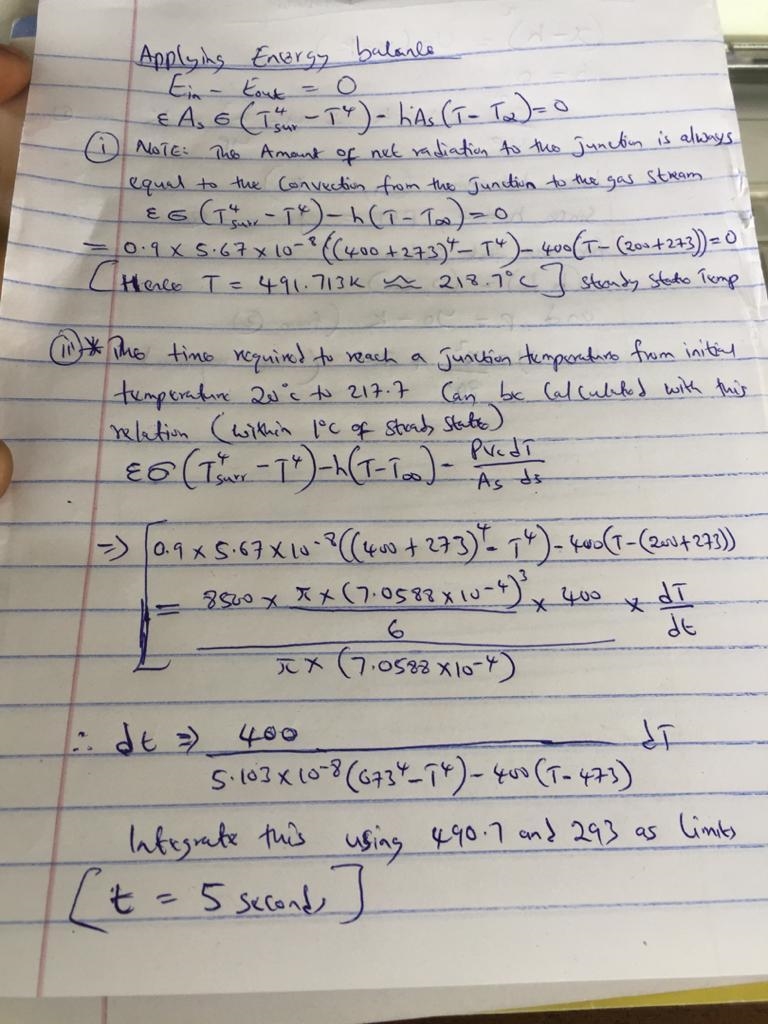 Applying Energy balance
Ein - Eout = 0
εAsϭ(T⁴sur - T⁴) - hAs(T - T∞) = 0
(i) NOTE: The Amount of net radiation to the junction is always
equal to the Convection from the junction to the gas stream
εσ(T⁴surr - T⁴) - h(T - T∞) = 0
= 0.9 x 5.67 x 10⁻⁸((400 + 273)⁴ - T⁴) - 400(T - (200+273)) = 0
[Hence T = 491.713K ≈ 218.7°C] steady state Temp
(ii) * The time required to reach a junction temperature from initial
temperature 20°c to 217.7 Can be Calculated with this
relation (within 1°C of steady state)
εσ(T⁴surr - T⁴) - h(T - T∞) - ρVcdT / As ds
=> [0.9 x 5.67 x 10⁻⁸((400 + 273)⁴ - T⁴) - 400(T - (200+273))
= 8500 x π x (7.0588 x 10⁻⁴)³ / 6 x 400 x dT / dt
π x (7.0588 x 10⁻⁴)
∴ dt => 400 / 5.103 x 10⁻⁸(673⁴ - T⁴) - 400(T - 473) dT
Integrate this using 490.7 and 293 as limits
[t = 5 seconds]